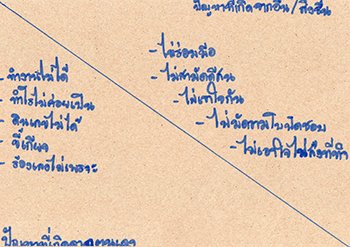 ปัญหาที่เกิดจากอื่น/สิ่งอื่น
- ไม่ร่วมมือ
- ไม่สามัคคีกัน
- ไม่เข้าใจกัน
- ไม่มีความรับผิดชอบ
- ไม่เอาใจใส่สิ่งที่ทำ
- ทำงานไม่ได้
- ทำไรไม่ค่อยเป็น
- คิดเลขไม่ได้
- ขี้เกียจ
- ร้องเพลงไม่เพราะ
ปัญหาที่เกิดจากตนเอง